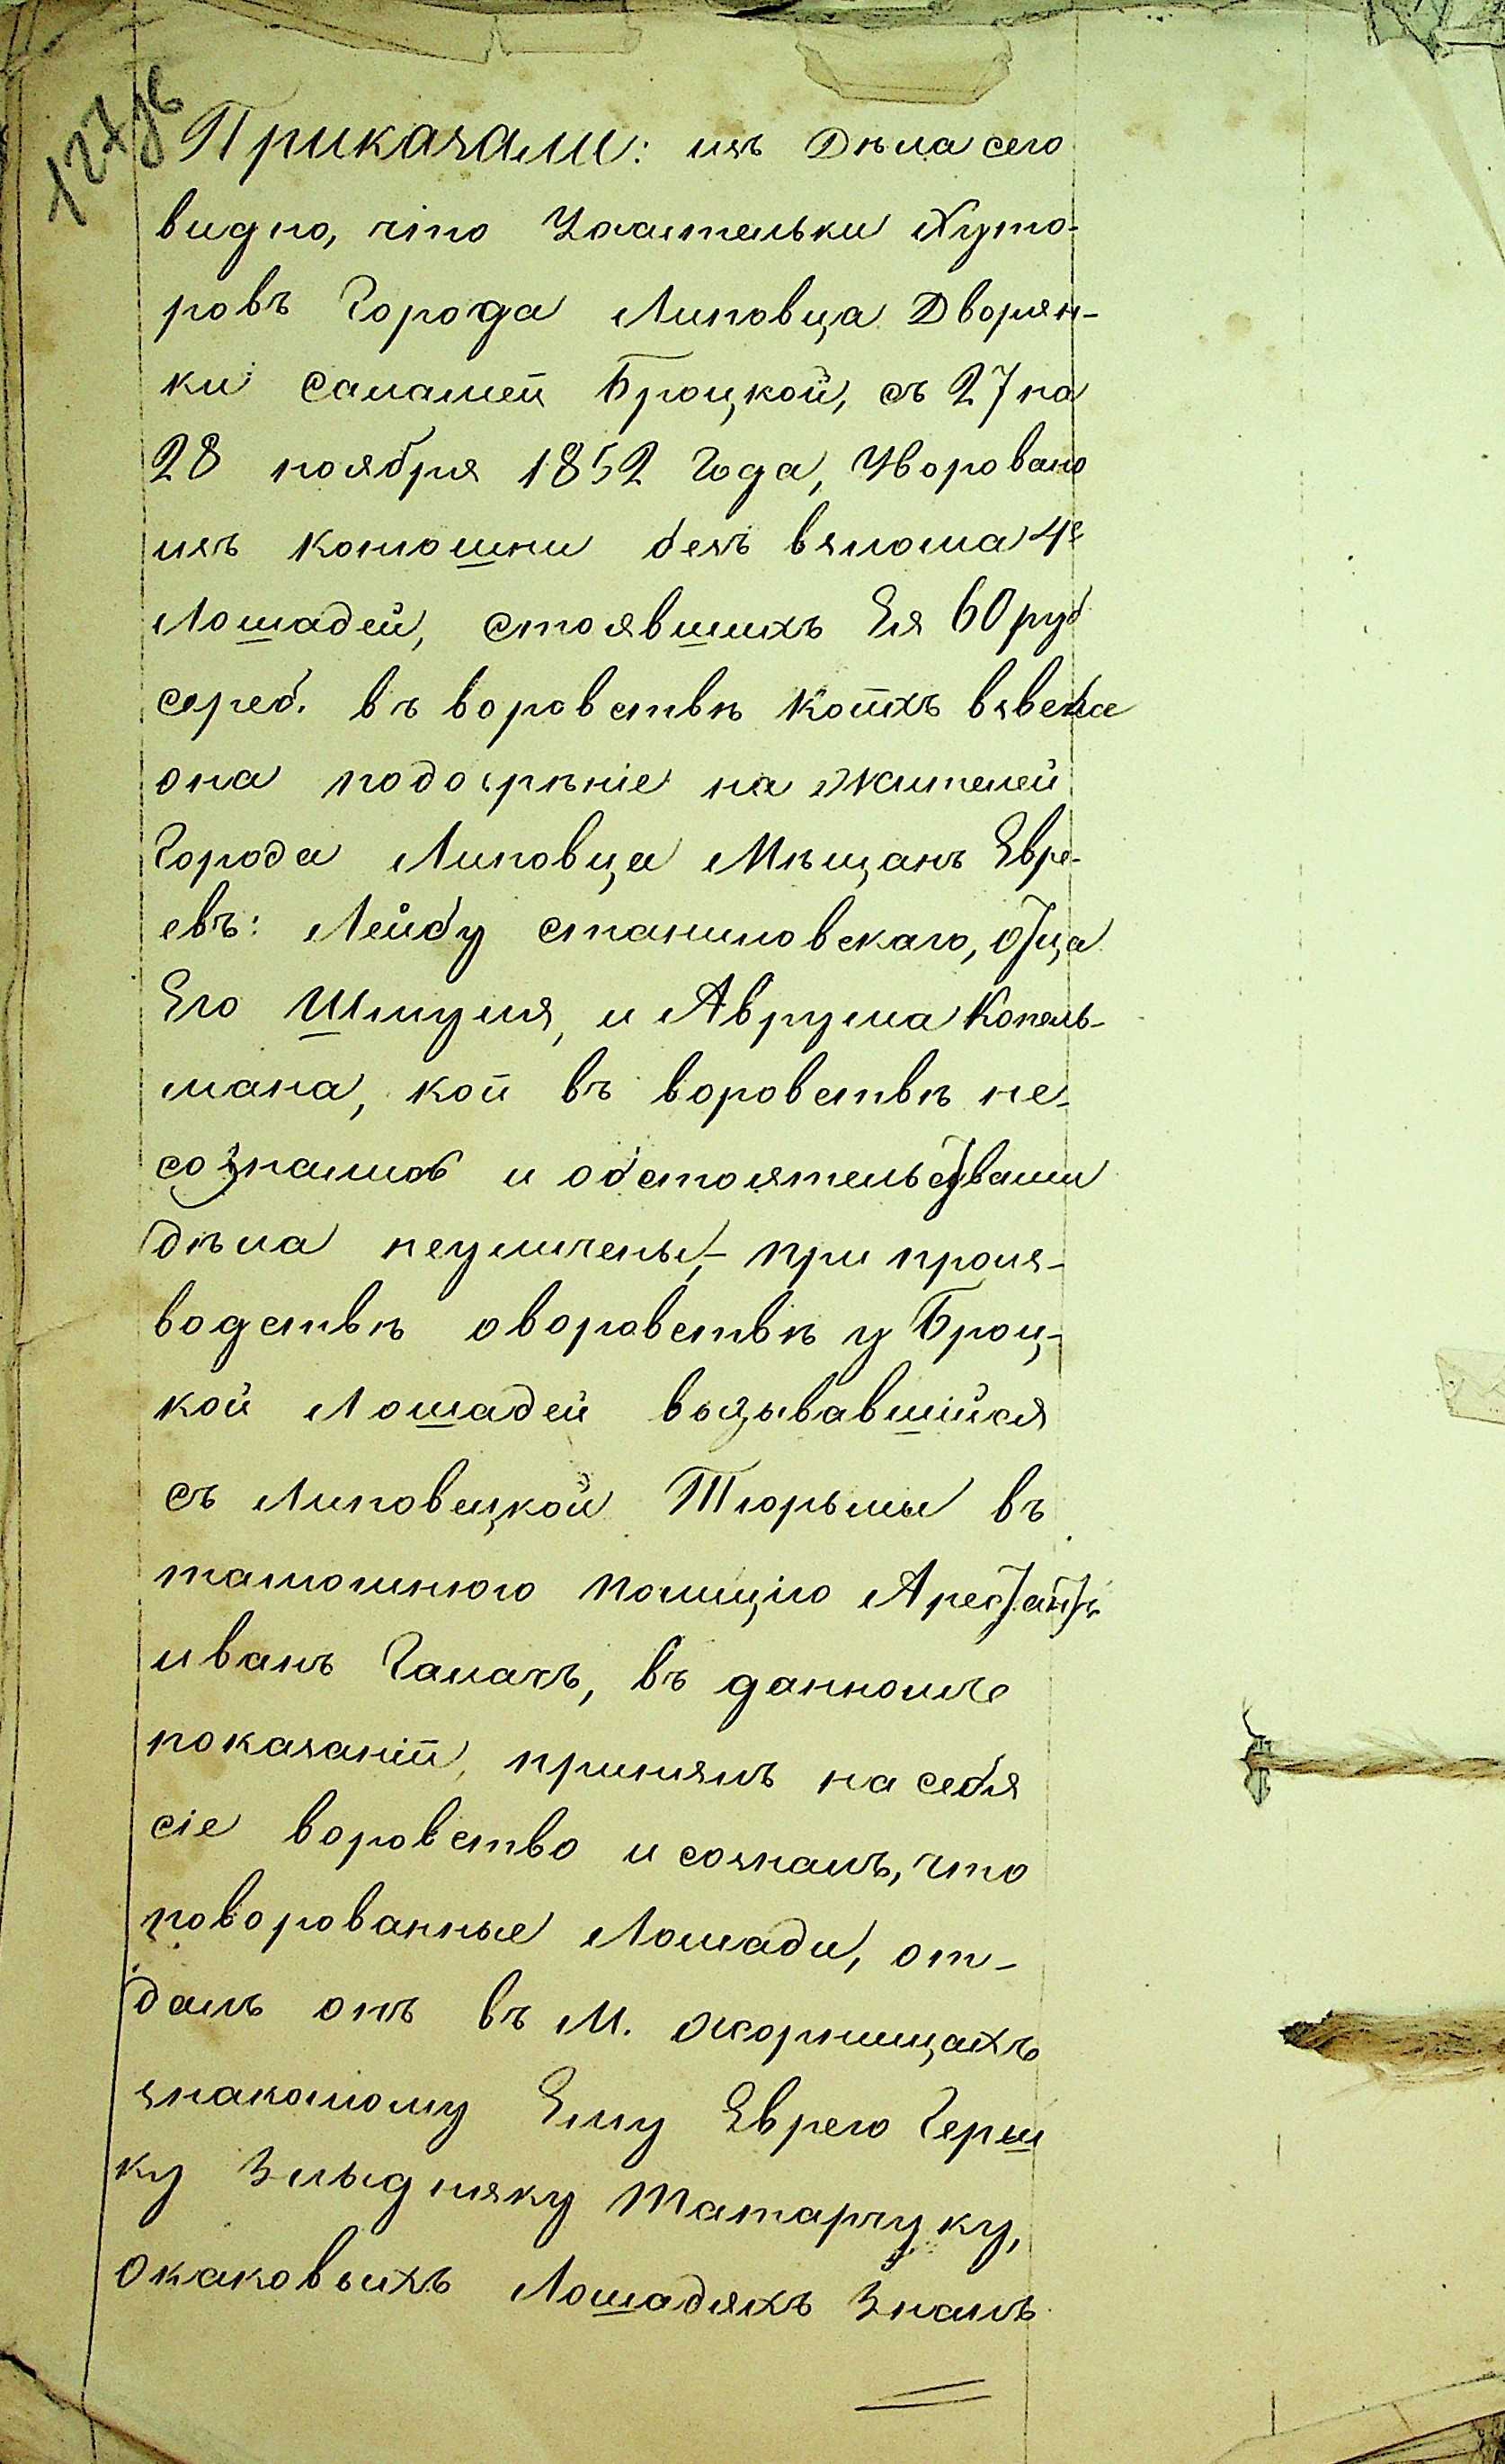 127 об
Приказали: изъ Дѣла сего
видно, что Жительки Хуто-
ровъ Города Липовца Дворян-
ки Саламеи Броцкой, съ 27 на
28 ноября 1852 Года, Уворовано
изъ конюшни безъ взлома 4е
Лошадей, стоявшихъ Ея 60 руб
сереб. въ воровствѣ котхъ взвела
она подозрѣніе на Жителей
Города Липовца Мѣщанъ Евре-
евъ: Лейбу Станиловскаго, отца
Его Шмуля, и Аврума Копель-
мана, кои въ воровствѣ не-
сознались и обстоятельствами
дѣла неуличены,- при произ-
водствѣ о воровствѣ у Броц-
кой Лошадей вызывавшійся
съ Липовецкой Тюрьмы въ
тамошнюю полицію Арестантъ
иванъ Галачъ, въ данномъ
показаніи, принялъ на себя
сіе воровство и созналъ, что
поворованные Лошади, от-
далъ онъ въ М. Жорнищахъ
знакомому Ему Еврею Герш
ку Злыдняку Татарчуку,
о каковыхъ Лошадяхъ Зналъ